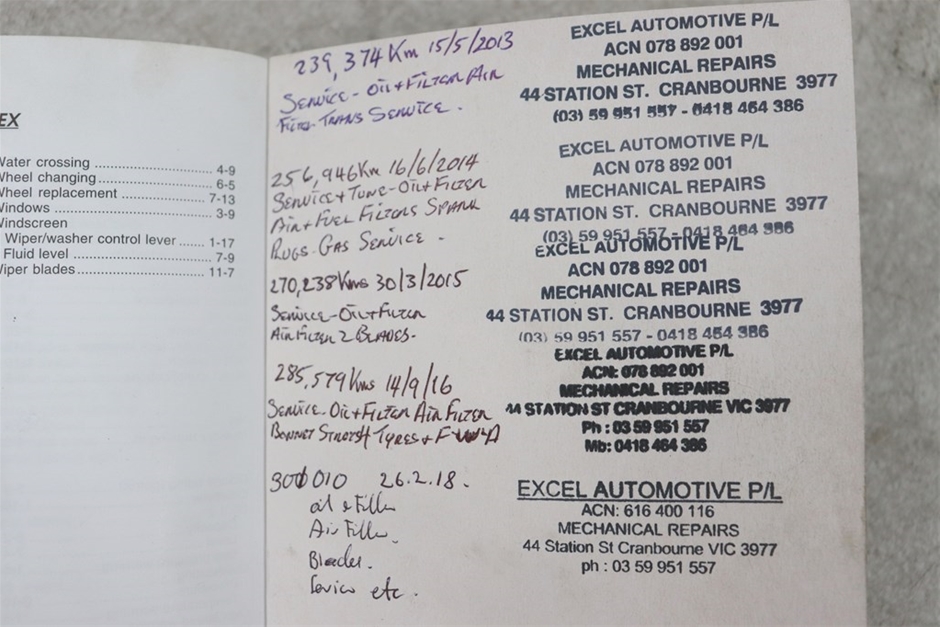 EX
Water crossing 4-9
Wheel changing 6-5
Wheel replacement 7-13
Windows 3-9
Windscreen
Wiper/washer control lever 1-17
Fluid level 7-9
Wiper blades 11-7
239,374 Km 15/5/2013
Service - Oil + Filter Air
Filter Trans Service.
EXCEL AUTOMOTIVE P/L
ACN 078 892 001
MECHANICAL REPAIRS
44 STATION ST. CRANBOURNE 3977
(03) 59 951 557 - 0418 464 386
256,946Km 16/6/2014
Service + Tune - Oil + Filter
Air + Fuel Filters Spark
Plugs. Gas Service -
EXCEL AUTOMOTIVE P/L
ACN 078 892 001
MECHANICAL REPAIRS
44 STATION ST. CRANBOURNE 3977
(03) 59 951 557 - 0418 464 386
270,238Kms 30/3/2015
Service - Oil + Filter
Air Filter 2 Blades.
EXCEL AUTOMOTIVE P/L
ACN 078 892 001
MECHANICAL REPAIRS
44 STATION ST. CRANBOURNE 3977
(03) 59 951 557 - 0418 464 386
285,579 Kms 14/9/16
Service - Oil + Filter Air Filter
Bonnet Tyres +
EXCEL AUTOMOTIVE P/L
ACN: 078 892 001
MECHANICAL REPAIRS
44 STATION ST CRANBOURNE VIC 3977
Ph : 03 59 951 557
Mb: 0418 464 386
300010 26.2.18.
oil & filter
Air Filter.
Service etc.
EXCEL AUTOMOTIVE P/L
ACN: 616 400 116
MECHANICAL REPAIRS
44 Station St Cranbourne VIC 3977
ph : 03 59 951 557